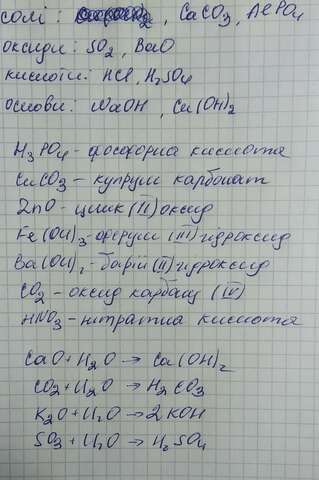 солі: CaCO3, AlPO4
оксиди: SO2, BaO
кислоти: HCl, H2SO4
основи: NaOH, Cu(OH)2
H3PO4 - фосфорна кислота
CuCO3 - купрум карбонат
ZnO - цинк (II) оксид
Fe(OH)3 - ферум (III) гідроксид
Ba(OH)2 - барій (II) гідроксид
CO2 - оксид карбону (IV)
HNO3 - нітратна кислота
CaO + H2O → Ca(OH)2
CO2 + H2O → H2CO3
K2O + H2O → 2KOH
SO3 + H2O → H2SO4